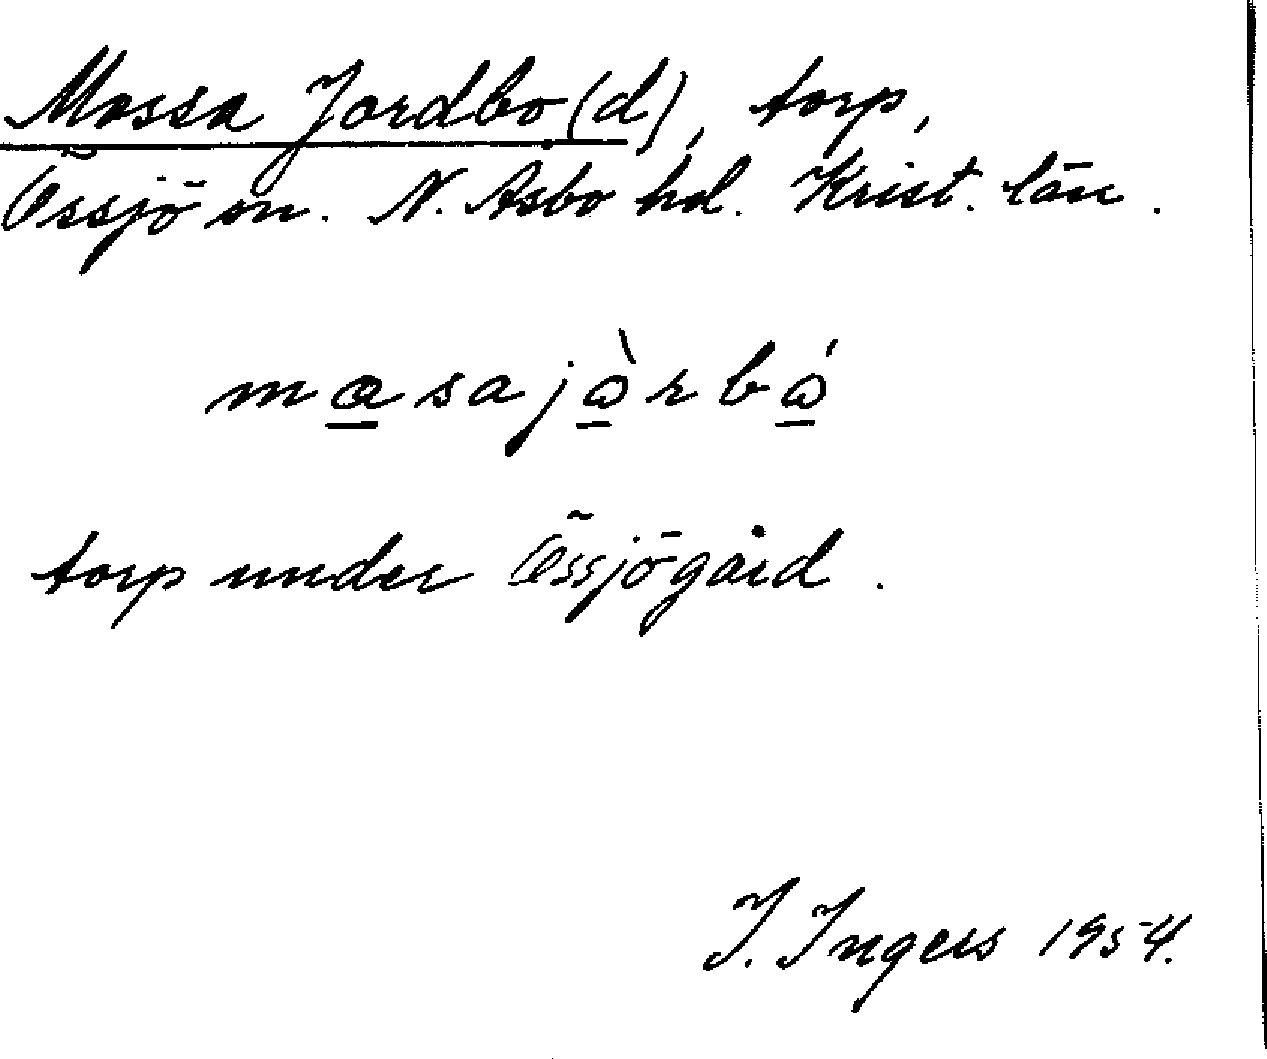 Mossa Jordbo(d), torp,
Össjö sn. N. Åsbo hd. Krist. län.
masajòrbó
torp under Össjögård.
I. Ingers 1954.